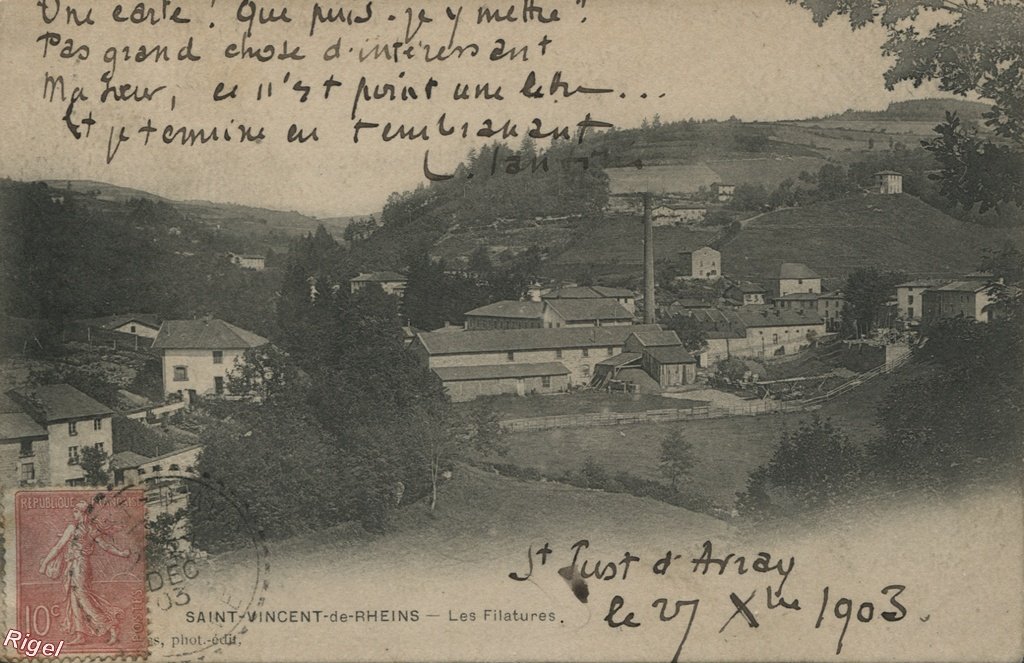 Une carte ! Que puis-je y mettre ?
Pas grand chose d'intéressant
Ma Sœur, ce n'est point une lettre...
Et je termine en tembranant
RÉPUBLIQUE FRANÇAISE
POSTES
10c
DEC
03
SAINT-VINCENT-de-RHEINS — Les Filatures.
phot.-édit.
St Just d'Avray
le 27 Xbre 1903.
Rigel